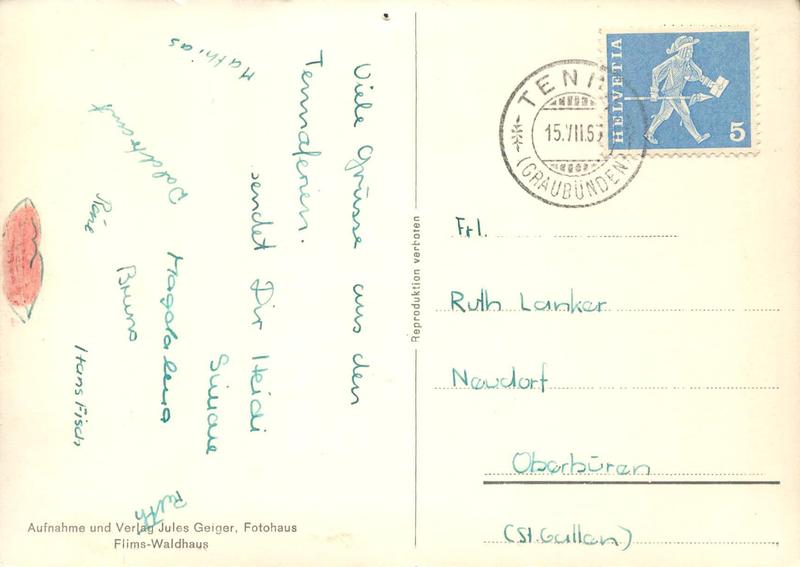 Viele Grüsse aus den
Tennaferien.
sendet Dir Heidi
Simone
Mathias
Magdalena
Bruno
René
Hans Fisch
Ruth
Aufnahme und Verlag Jules Geiger, Fotohaus
Flims-Waldhaus
Reproduktion verboten
HELVETIA
5
TENNA
15.VII.6
(GRAUBÜNDEN)
Frl.
Ruth Lanker
Neudorf
Oberbüren
(St. Gallen)